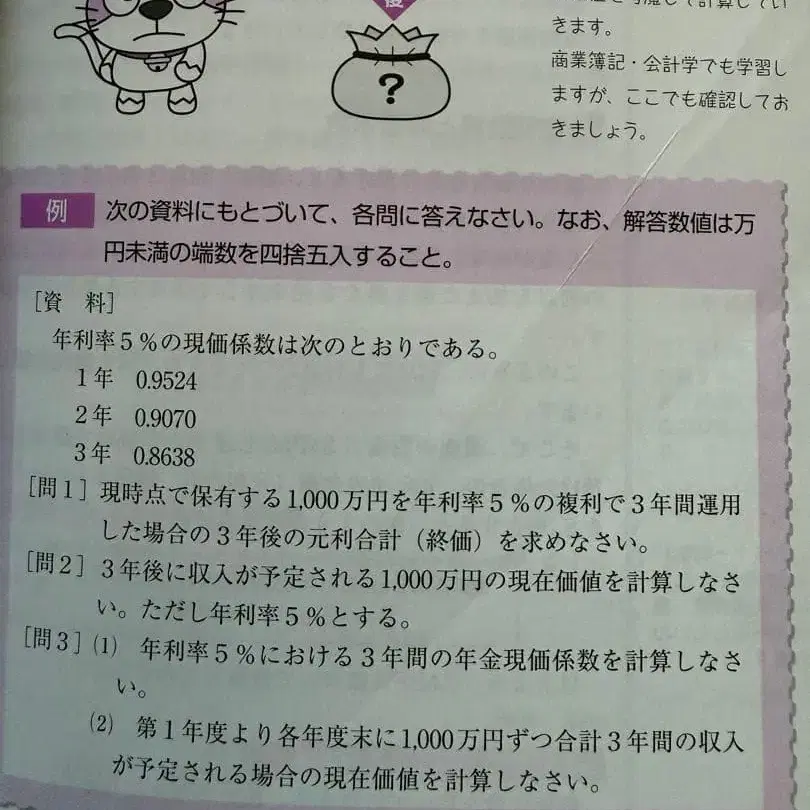 後
?
きます。
商業簿記・会計学でも学習し
ますが、ここでも確認してお
きましょう。
例 次の資料にもとづいて、各問に答えなさい。なお、解答数値は万
円未満の端数を四捨五入すること。
［資 料］
年利率５％の現価係数は次のとおりである。
１年 0.9524
２年 0.9070
３年 0.8638
［問１］現時点で保有する1,000万円を年利率５％の複利で３年間運用
した場合の３年後の元利合計（終価）を求めなさい。
［問２］３年後に収入が予定される1,000万円の現在価値を計算しなさ
い。ただし年利率５％とする。
［問３］⑴ 年利率５％における３年間の年金現価係数を計算しなさ
い。
⑵ 第１年度より各年度末に1,000万円ずつ合計３年間の収入
が予定される場合の現在価値を計算しなさい。